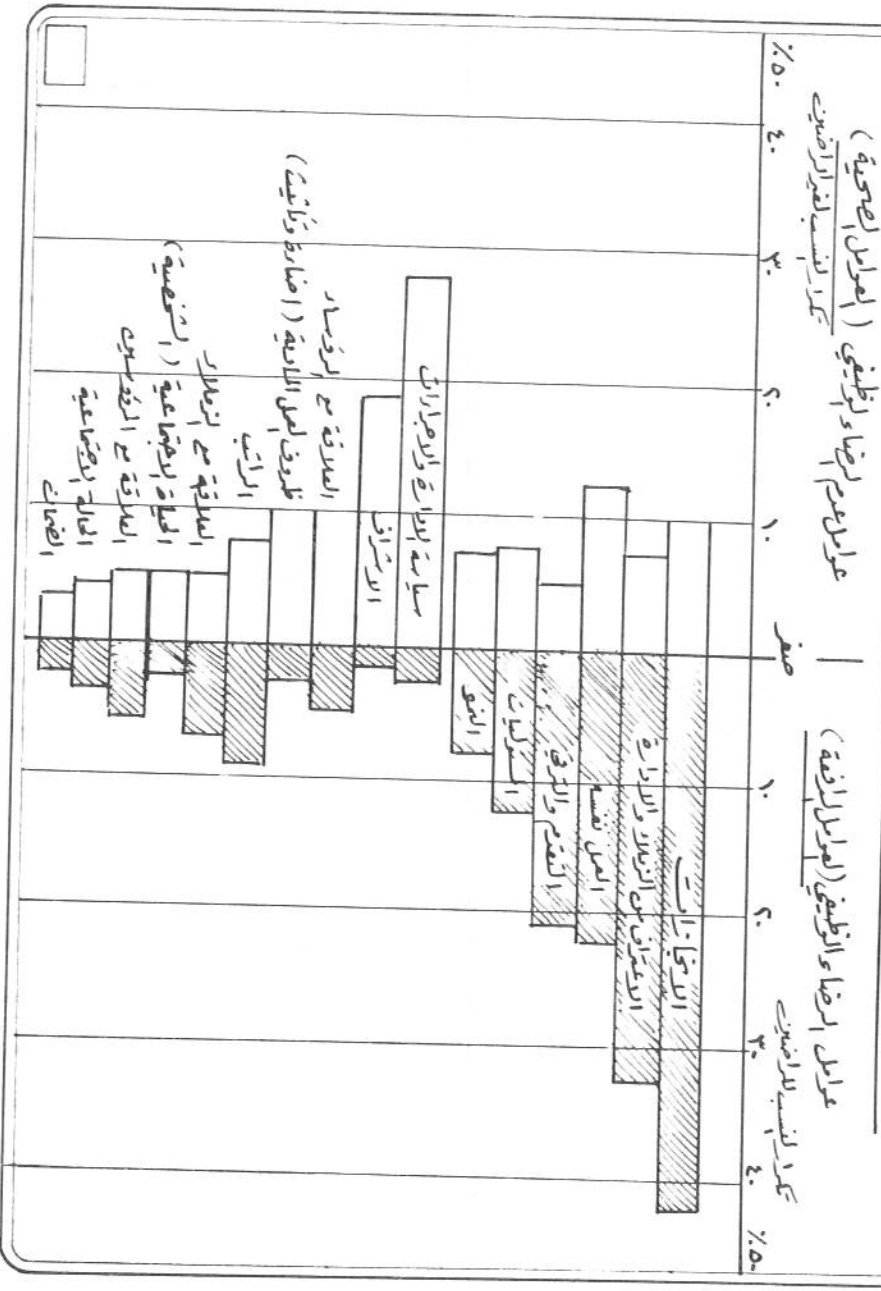 عوامل الرضاء الوظيفي (العوامل الدافعة)
عوامل عدم الرضاء الوظيفي (العوامل الصحية)
تكرار النسب للراضين
تكرار النسب لغير الراضين
٪٥٠ ٤٠ ٣٠ ٢٠ ١٠ صفر ١٠ ٢٠ ٣٠ ٤٠ ٪٥٠
الانجازات
الاعتراف من الزملاء والادارة
العمل نفسه
التقدم والترقي
المسئوليات
النمو
سياسة الادارة والاجراءات
الاشراف
العلاقة مع الرؤساء
ظروف العمل المادية (اضاءة وتأثيث)
الراتب
العلاقة مع الزملاء
الحياة الاجتماعية (الشخصية)
العلاقة مع المرؤوسين
الحالة الاجتماعية
الضمان